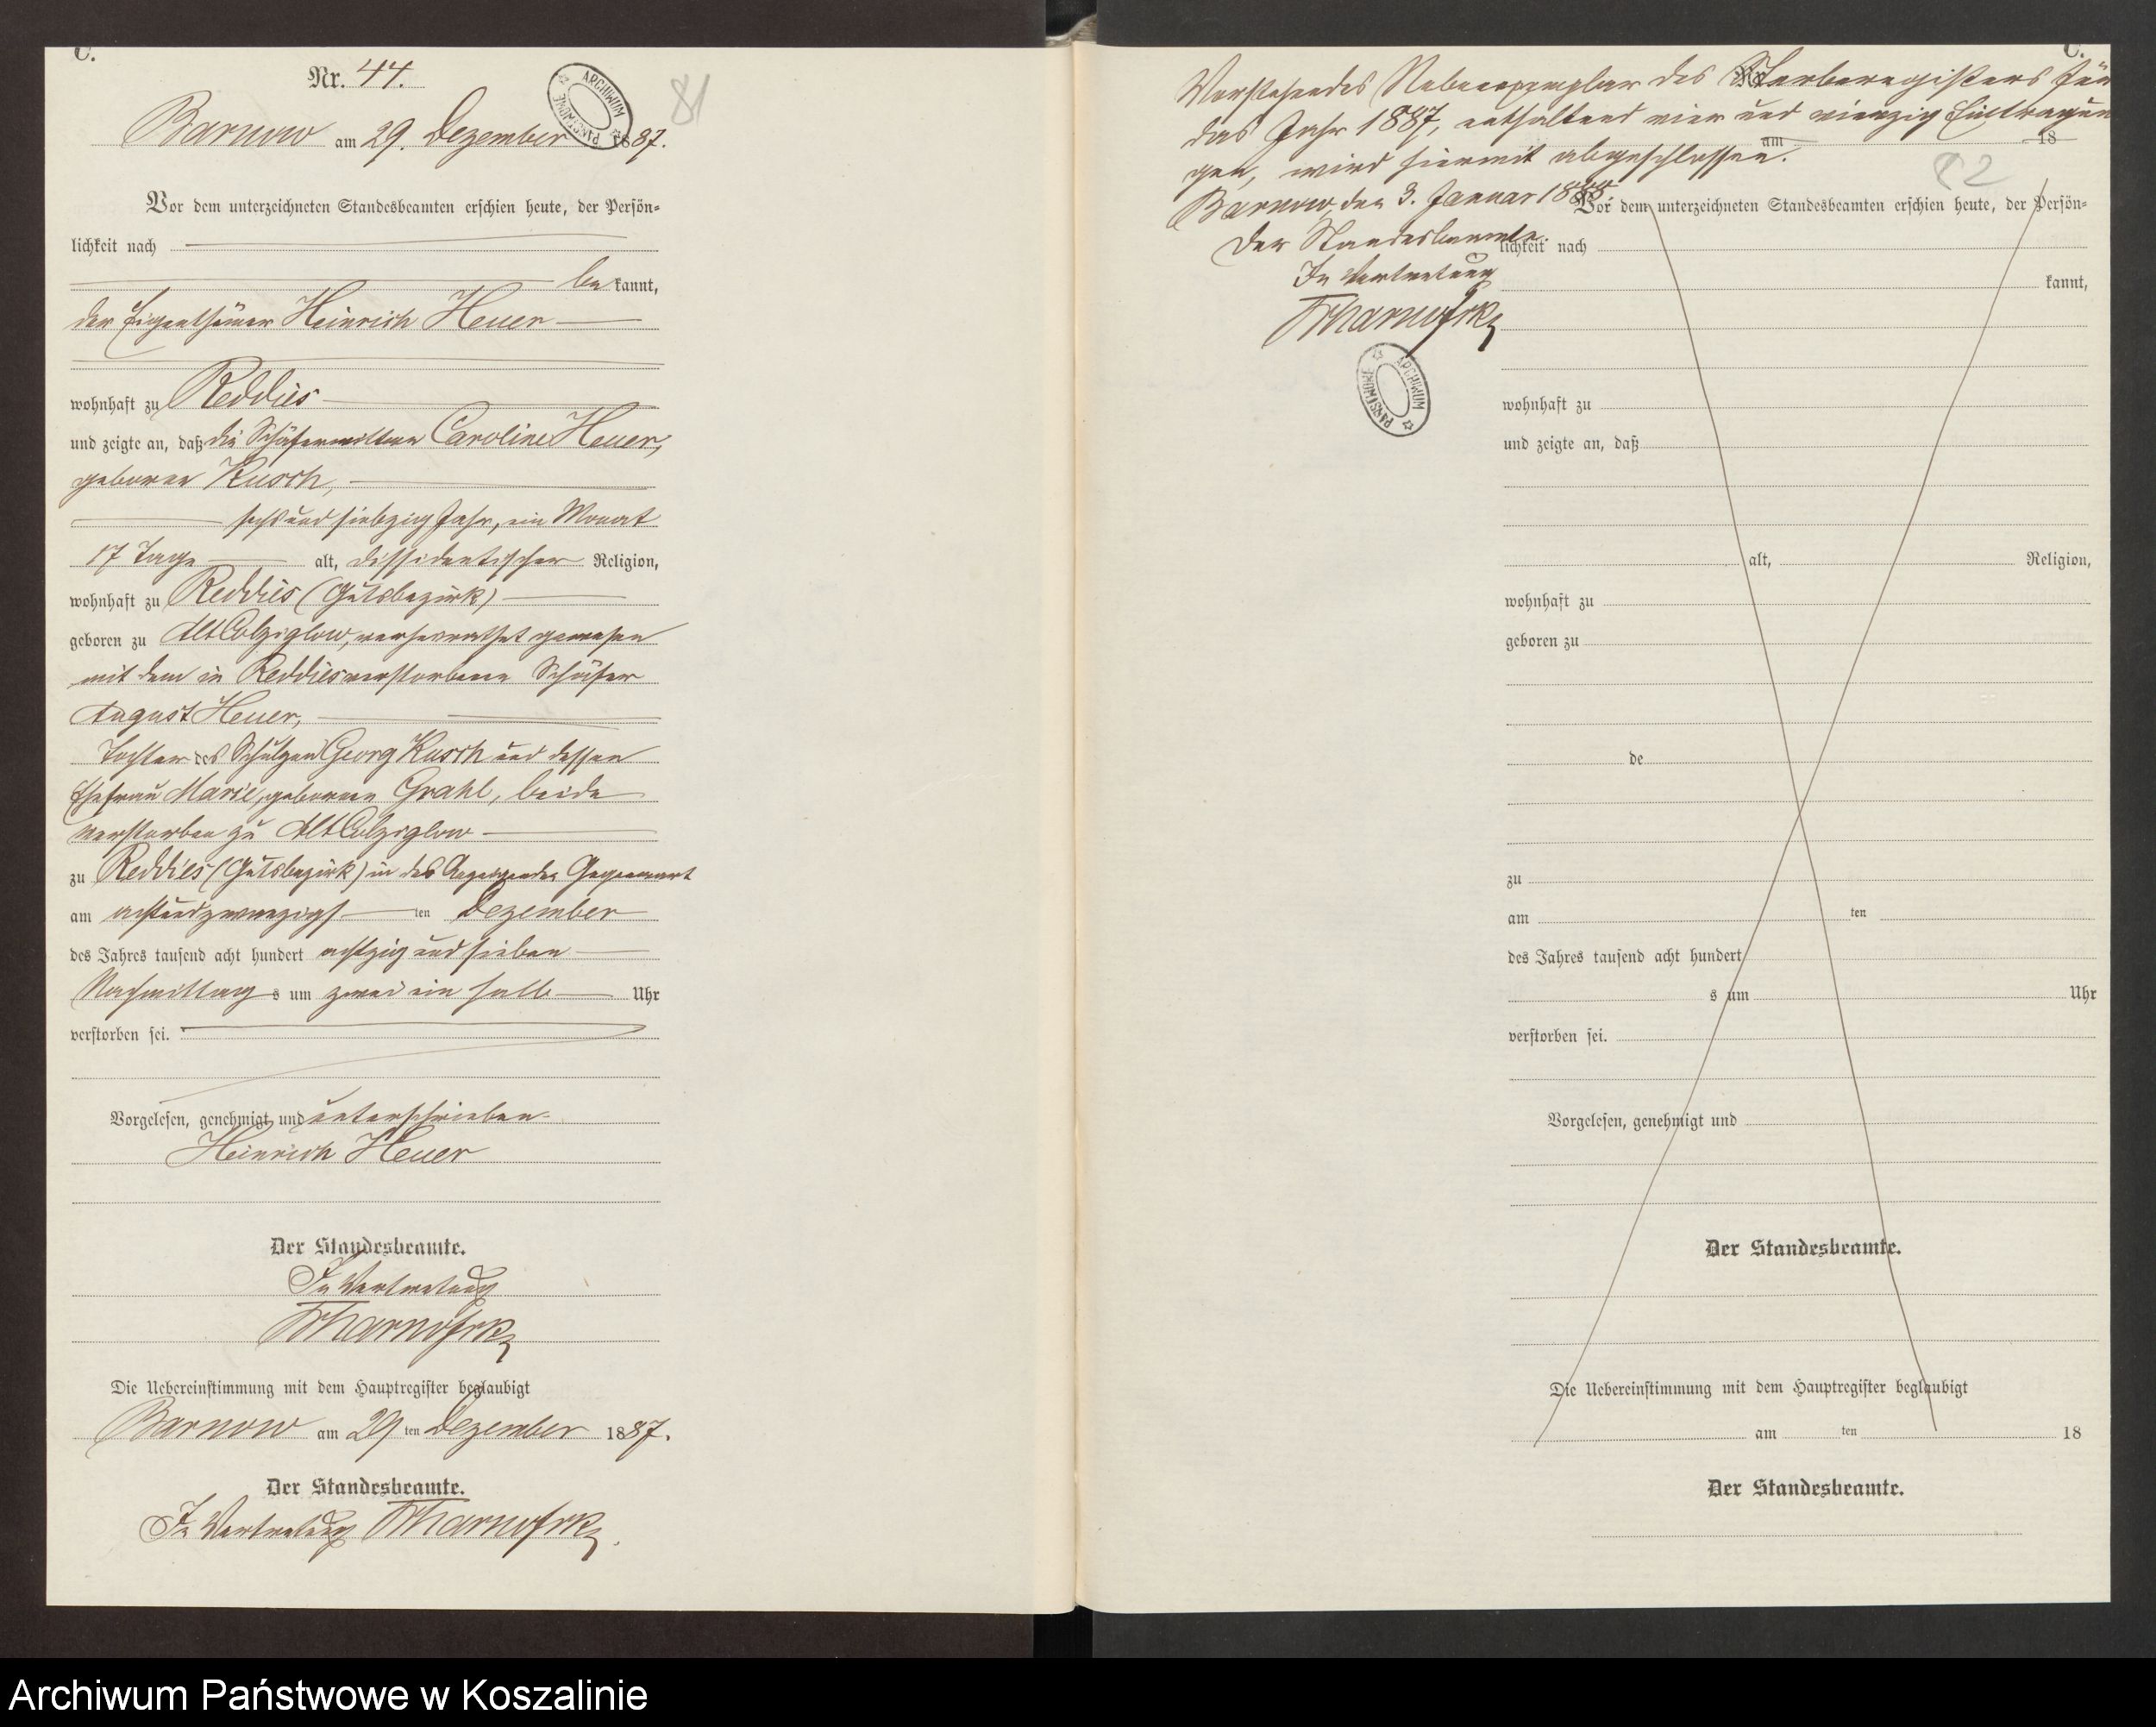 C.
Nr. 44.
81
ARCHIWUM PAŃSTWOWE
Barnow am 29. Dezember 1887.
Vor dem unterzeichneten Standesbeamten erschien heute, der Persön-
lichkeit nach
be kannt,
der Eigenthümer Heinrich Heuer
wohnhaft zu Reddies
und zeigte an, daß die Schäferwittwe Caroline Heuer,
geborene Kusch,
sechsundsiebzig Jahr, ein Monat
17 Tage alt, dissidentischer Religion,
wohnhaft zu Reddies (Gutsbezirk)
geboren zu Alt Colziglow, verheirathet gewesen
mit dem in Reddies verstorbenen Schäfer
August Heuer,
Tochter des Schulzen Georg Kusch und dessen
Ehefrau Marie, geborenen Grahl, beide
verstorben zu Alt Colziglow
zu Reddies (Gutsbezirk) in des Anzeigenden Gegenwart
am achtundzwanzigsten Dezember
des Jahres tausend acht hundert achtzig und sieben
Nachmittags um zwei ein halb Uhr
verstorben sei.
Vorgelesen, genehmigt und unterschrieben.
Heinrich Heuer
Der Standesbeamte.
In Vertretung
Die Uebereinstimmung mit dem Hauptregister beglaubigt
Barnow am 29 ten Dezember 1887.
Der Standesbeamte.
In Vertretung
C.
Nr.
Vorstehendes Nebenexemplar des Sterberegisters für
das Jahr 1887, enthaltend vier und vierzig Eintragun
gen, wird hiermit abgeschlossen.
am 18
82
Barnow, den 3. Januar 1888.
Der Standesbeamte.
In Vertretung
ARCHIWUM PAŃSTWOWE
Vor dem unterzeichneten Standesbeamten erschien heute, der Persön-
lichkeit nach
kannt,
wohnhaft zu
und zeigte an, daß
alt, Religion,
wohnhaft zu
geboren zu
de
zu
am ten
des Jahres tausend acht hundert
s um Uhr
verstorben sei.
Vorgelesen, genehmigt und
Der Standesbeamte.
Die Uebereinstimmung mit dem Hauptregister beglaubigt
am ten 18
Der Standesbeamte.
Archiwum Państwowe w Koszalinie